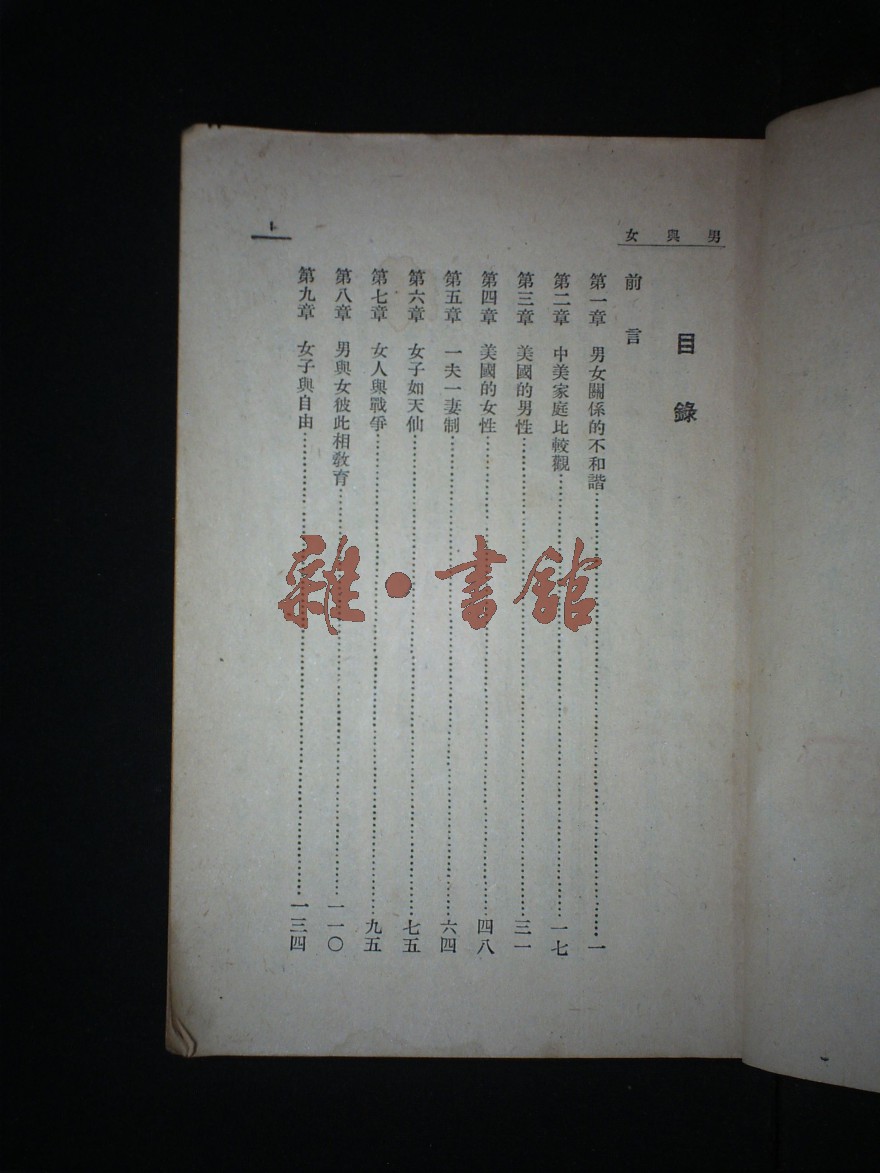 男與女
目錄
前言
第一章 男女關係的不和諧……一
第二章 中美家庭比較觀……一七
第三章 美國的男性……三一
第四章 美國的女性……四八
第五章 一夫一妻制……六四
第六章 女子如天仙……七五
第七章 女人與戰爭……九五
第八章 男與女彼此相教育……一一〇
第九章 女子與自由……一三四
雜·書館